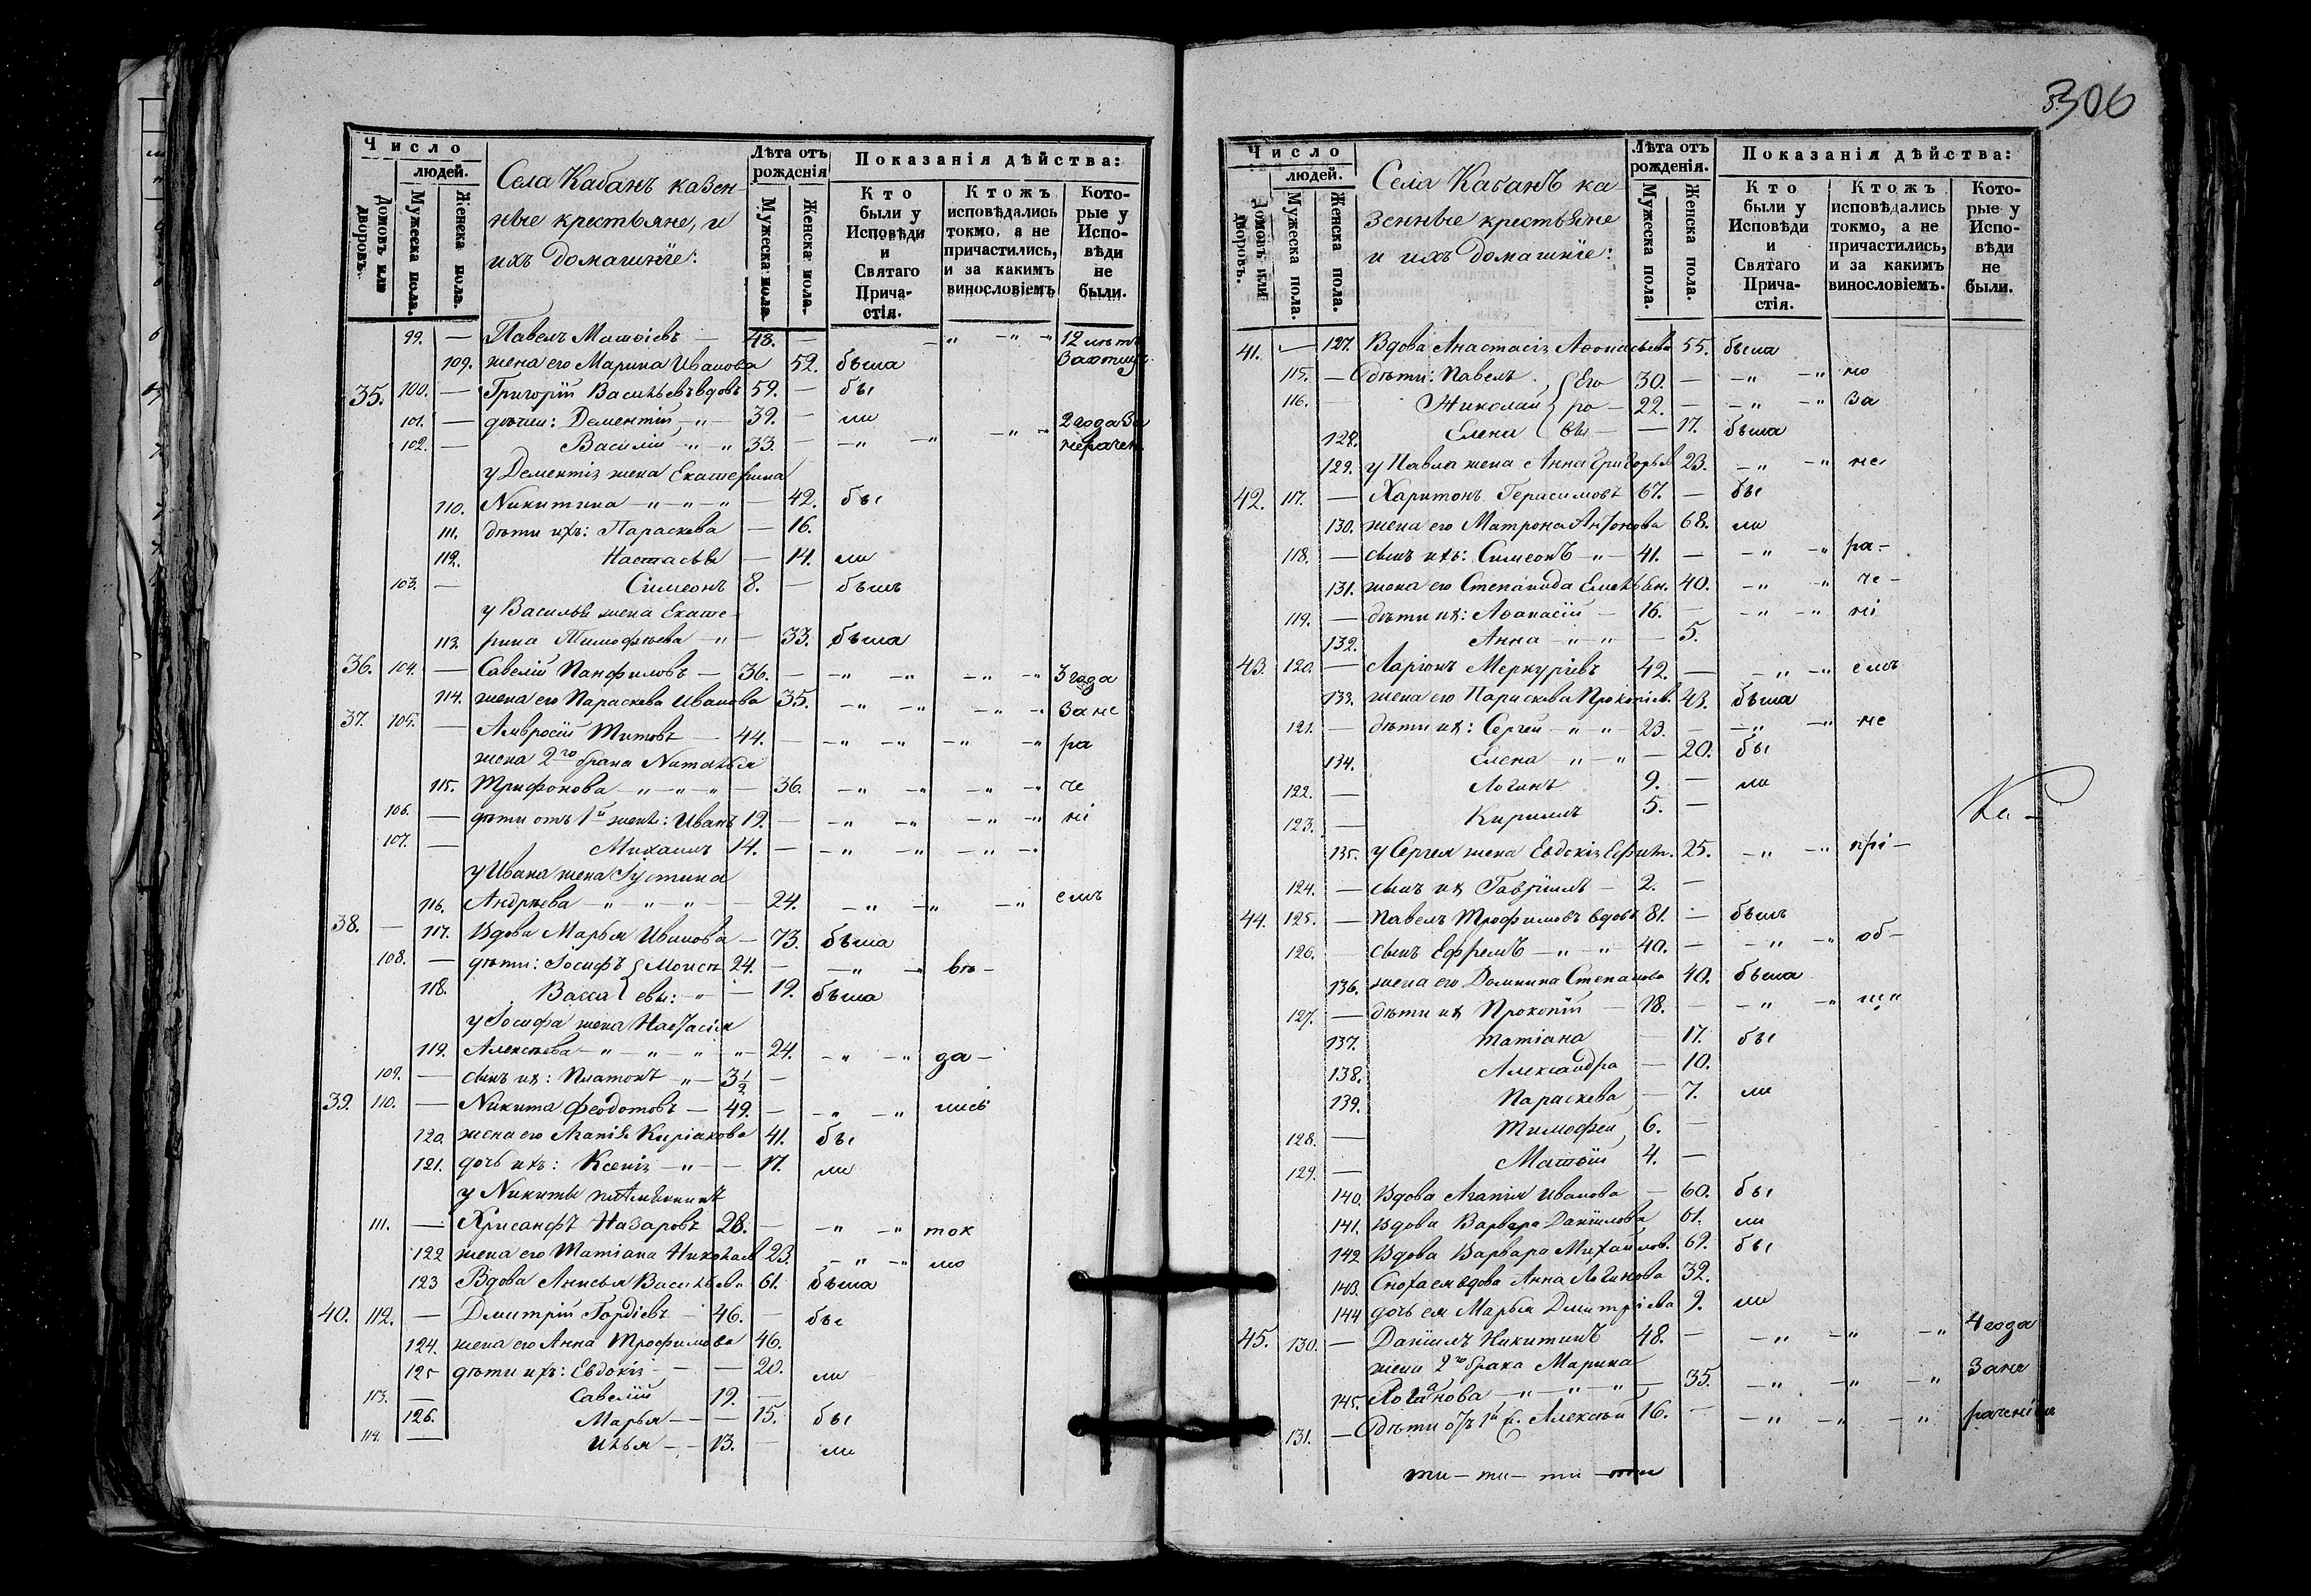 306
Число
людей.
Домовъ или дворовъ.
Мужеска пола.
Женска пола.
Села Кабанъ казен-
ные крестьяне, и
ихъ домашніе:
Лѣта отъ рожденія
Мужеска пола.
Женска пола.
Показанія дѣйства:
Кто были у Исповѣди и Святаго Причастія.
Ктожъ исповѣдались токмо, а не причастились, и за какимъ винословіемъ
Которые у Исповѣди не были.
99. — Павелъ — 48. —
109. жена его Марина Иванова 52. была
35. 100. — Григорій Васильевъ вдовъ 59. — бы
101. — дѣти: Дементій — 39. — ли 2 года за
102. — Василій 33. —
у Дементія жена Екатерина
110. Никитина — 42. бы
111. дѣти ихъ: Параскева — 16.
112. Настасья — 14. ли
103. — Симеонъ 8. — былъ
у Василья жена Екате-
113. рина Тимофѣева — 33. была
36. 104. — Савелій Панфиловъ — 36. — 3 года
114. жена его Параскева Иванова 35. за не
37. 105. — Амвросій Титовъ — 44. — ра
жена 2го брака Наталья
115. Трифонова — 36. че
106. — дѣти отъ 1й жены: Иванъ 19. — ні
107. — Михаилъ 14. —
у Ивана жена Іустина
116. Андреева — 24. емъ
38. — 117. Вдова Марья Иванова — 73. была
108. — дѣти: Іосифъ Моисе 24. —
118. Васса евы: — 19. была
у Іосифа жена Настасія
119. Алексѣева — 24. да —
109. — сынъ их: Платонъ — 3 1/2 —
39. 110. — Никита Феодотовъ — 49. — лись
120. жена его Агапія Киріакова 41. бы
121. дочь ихъ: Ксенія — 17. ли
у Никиты племянникъ
111. — Хрисанфъ Назаровъ 28. — ток
122 жена его Матіана Николаев 23. мо
123 Вдова Анисья Васильева 61. была
40. 112. — Дмитрій Гордіевъ — 46. — бы
124. жена его Анна Трофимова 46.
125 дѣти ихъ: Евдокія — 20. ли
113. — Савелій 19. —
126. Марья — 15. бы
114. — Илья — 13. — ли
Число
людей.
Домовъ или дворовъ.
Мужеска пола.
Женска пола.
Села Кабанъ ка
зенные крестьяне
и ихъ домашніе:
Лѣта отъ рожденія.
Мужеска пола.
Женска пола.
Показанія дѣйства:
Кто были у Исповѣди и Святаго Причастія.
Ктожъ исповѣдались токмо, а не причастились, и за какимъ винословіемъ.
Которые у Исповѣди не были.
41. — 127. Вдова Анастасія 55. была
115. — дѣти: Павелъ Его 30. —
116. — Николай ро — 22. — за
128. Елена вы — 17. была
129. у Павла жена Анна Григорьев 23. не
42. 117. — Харитонъ Герасимовъ 67. — бы
130. жена его Матрона Антонова 68. ли
118. — сынъ ихъ: Симеонъ — 41. — ра-
131. жена его Степанида Емельян. 40. че-
119. — дѣти их: Аѳанасій — 16. — ні
132. Анна — 5.
43. 120. — Ларіонъ Меркуріевъ 42. — емъ
133. жена его Параскева Прокопіев. 43. была
121. — дѣти их: Сергей 23. — не
134. Елена — 20. бы
122. — Логинъ 9. — ли
123. — Кирилъ 5. —
135. у Сергея жена Евдокія 25. прі-
124. — сынъ их Гавріилъ — 2. —
44. 125. — Павелъ Трофимовъ вдовъ 81. — былъ
126. — сынъ Ефремъ 40. — об-
136. жена его Домнина Степанова 40. была
127. — дѣти их Прокопій — 18. —
137. Татіана — 17. бы
138. Александра — 10.
139. Параскева — 7. ли
128. — Тимофей 6. —
129. — Матѳій 4. —
140. Вдова Агапія Иванова — 60. бы
141. Вдова Варвара Даніилова 61. ли
142 Вдова Варвара Михайлов. 69. бы
143. Сноха ея вдова Анна Логинова 32.
144 дочь ея Марья Дмитріева 9. ли
45. 130. — Даніилъ Никитинъ 48. — 4 года
жена 2го брака Марина за не
145. Логинова — 35.
131. — дѣти отъ 1й ж. Алексѣй 16. — раченіемъ
ти — ти — ти — ти